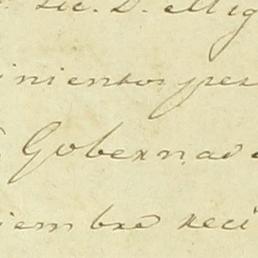 Lic. D. Mig
inientos per
Gobernad
iembre reci